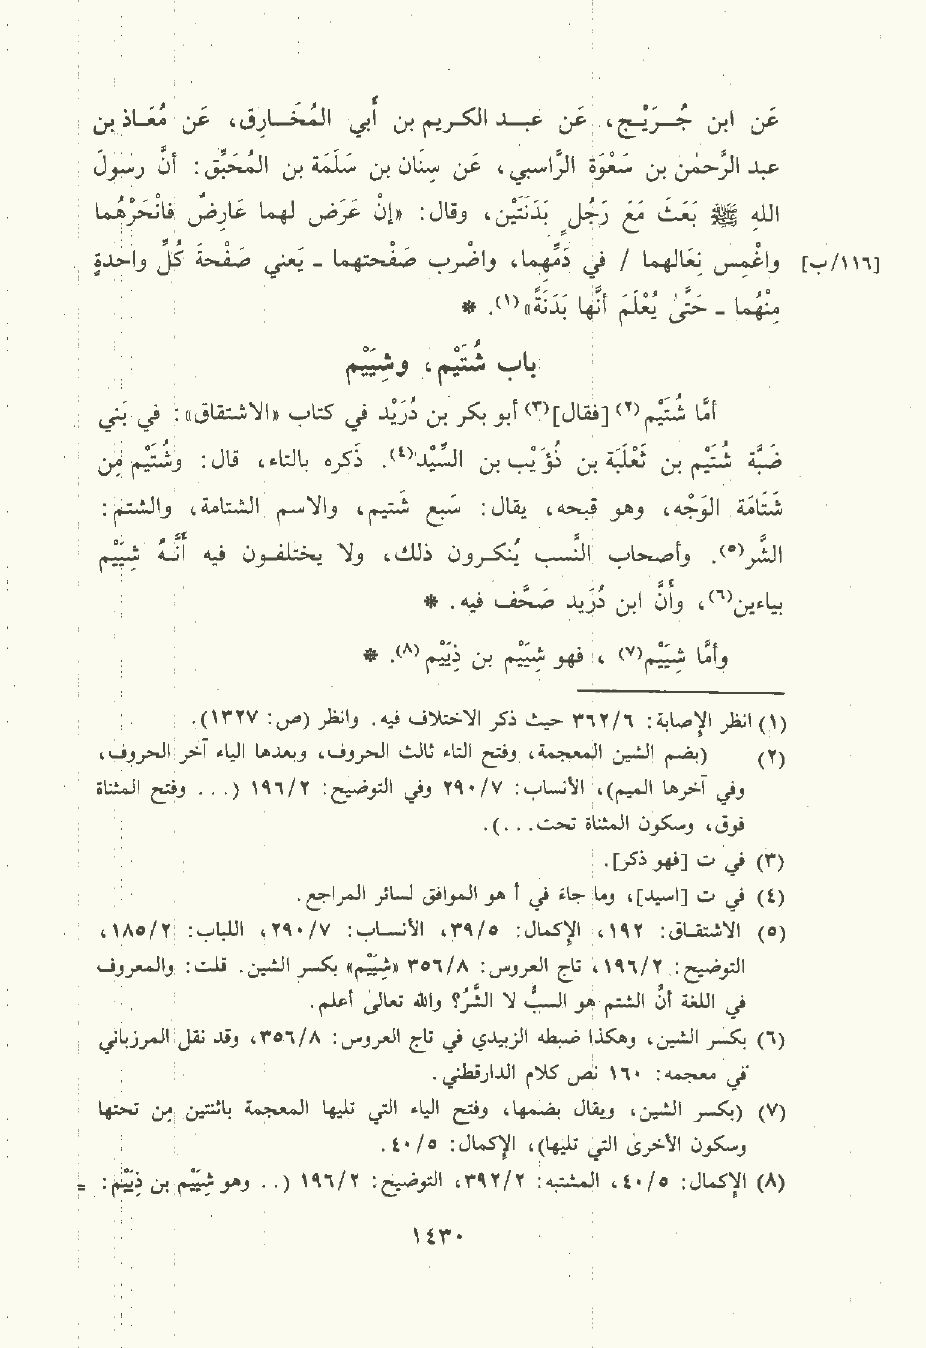 عَن ابن جُرَيْج، عَن عبد الكريم بن أبي المُخَارِق، عَن مُعَاذ بن
عبد الرَّحمٰن بن سَعْوَة الرَّاسبي، عَن سِنَان بن سَلَمَة بن المُحَبِّق: أنَّ رسولَ
اللهِ ﷺ بَعَثَ مَعَ رَجُلٍ بَدَنَتَيْنِ، وقال: «إنْ عَرَضَ لهما عَارِضٌ فانْحَرْهُما
[١١٦/ب] واغْمِس نِعَالهما / في دَمِّهما، واضْرب صَفْحتهما - يعني صَفْحَةَ كُلِّ واحدةٍ
مِنْهُما - حَتَّىٰ يُعْلَمَ أنَّها بَدَنَةٌ»(١). *
باب شُتَيْم، وشِيَيْم
أمَّا شُتَيْم(٢) [فقال](٣) أبو بكر بن دُرَيْد في كتاب «الاشتقاق»: في بَني
ضَبَّة شُتَيْم بن ثَعْلَبَة بن ذُؤَيْب بن السِّيْد(٤). ذكره بالتاء، قال: وشُتَيْم مِن
شَتَامَة الوَجْه، وهو قبحه، يقال: سَبع شَتيم، والاسم الشتامة، والشتم:
الشَّر(٥). وأصحاب النَّسب يُنكرون ذلك، ولا يختلفون فيه أنَّهُ شِيَيْم
بياءين(٦)، وأنَّ ابن دُرَيد صَحَّف فيه. *
وأمَّا شِيَيْم(٧) ، فهو شِيَيْم بن ذِيَيْم(٨). *
(١) انظر الإصابة: ٣٦٢/٦ حيث ذكر الاختلاف فيه. وانظر (ص: ١٣٢٧).
(٢) (بضم الشين المعجمة، وفتح التاء ثالث الحروف، وبعدها الياء آخر الحروف،
وفي آخرها الميم)، الأنساب: ٢٩٠/٧ وفي التوضيح: ١٩٦/٢ (... وفتح المثناة
فوق، وسكون المثناة تحت...).
(٣) في ت [فهو ذكر].
(٤) في ت [اسيد]، وما جاء في أ هو الموافق لسائر المراجع.
(٥) الاشتقاق: ١٩٢، الإكمال: ٣٩/٥، الأنساب: ٢٩٠/٧، اللباب: ١٨٥/٢،
التوضيح: ١٩٦/٢، تاج العروس: ٣٥٦/٨ «شِيَيْم» بكسر الشين. قلت: والمعروف
في اللغة أنَّ الشتم هو السبُّ لا الشَّرُ؟ والله تعالىٰ أعلم.
(٦) بكسر الشين، وهكذا ضبطه الزبيدي في تاج العروس: ٣٥٦/٨، وقد نقل المرزباني
في معجمه: ١٦٠ نص كلام الدارقطني.
(٧) (بكسر الشين، ويقال بضمها، وفتح الياء التي تليها المعجمة باثنتين مِن تحتها
وسكون الأخرىٰ التي تليها)، الإكمال: ٤٠/٥.
(٨) الإكمال: ٤٠/٥، المشتبه: ٣٩٢/٢، التوضيح: ١٩٦/٢ (.. وهو شِيَيْم بن ذِيَيْم: =
١٤٣٠